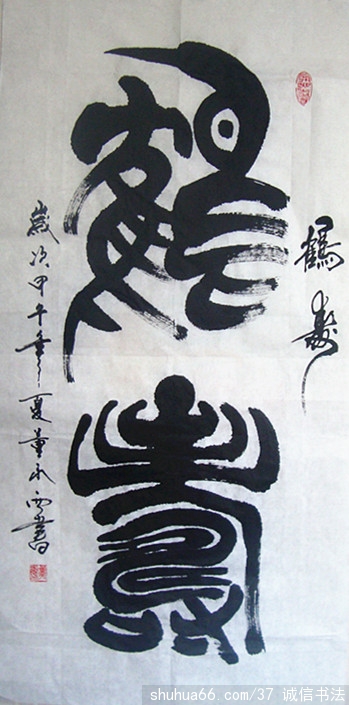 鶴壽
鶴寿
歲次甲午年夏董永西書
shuhua66.com/37 诚信书法